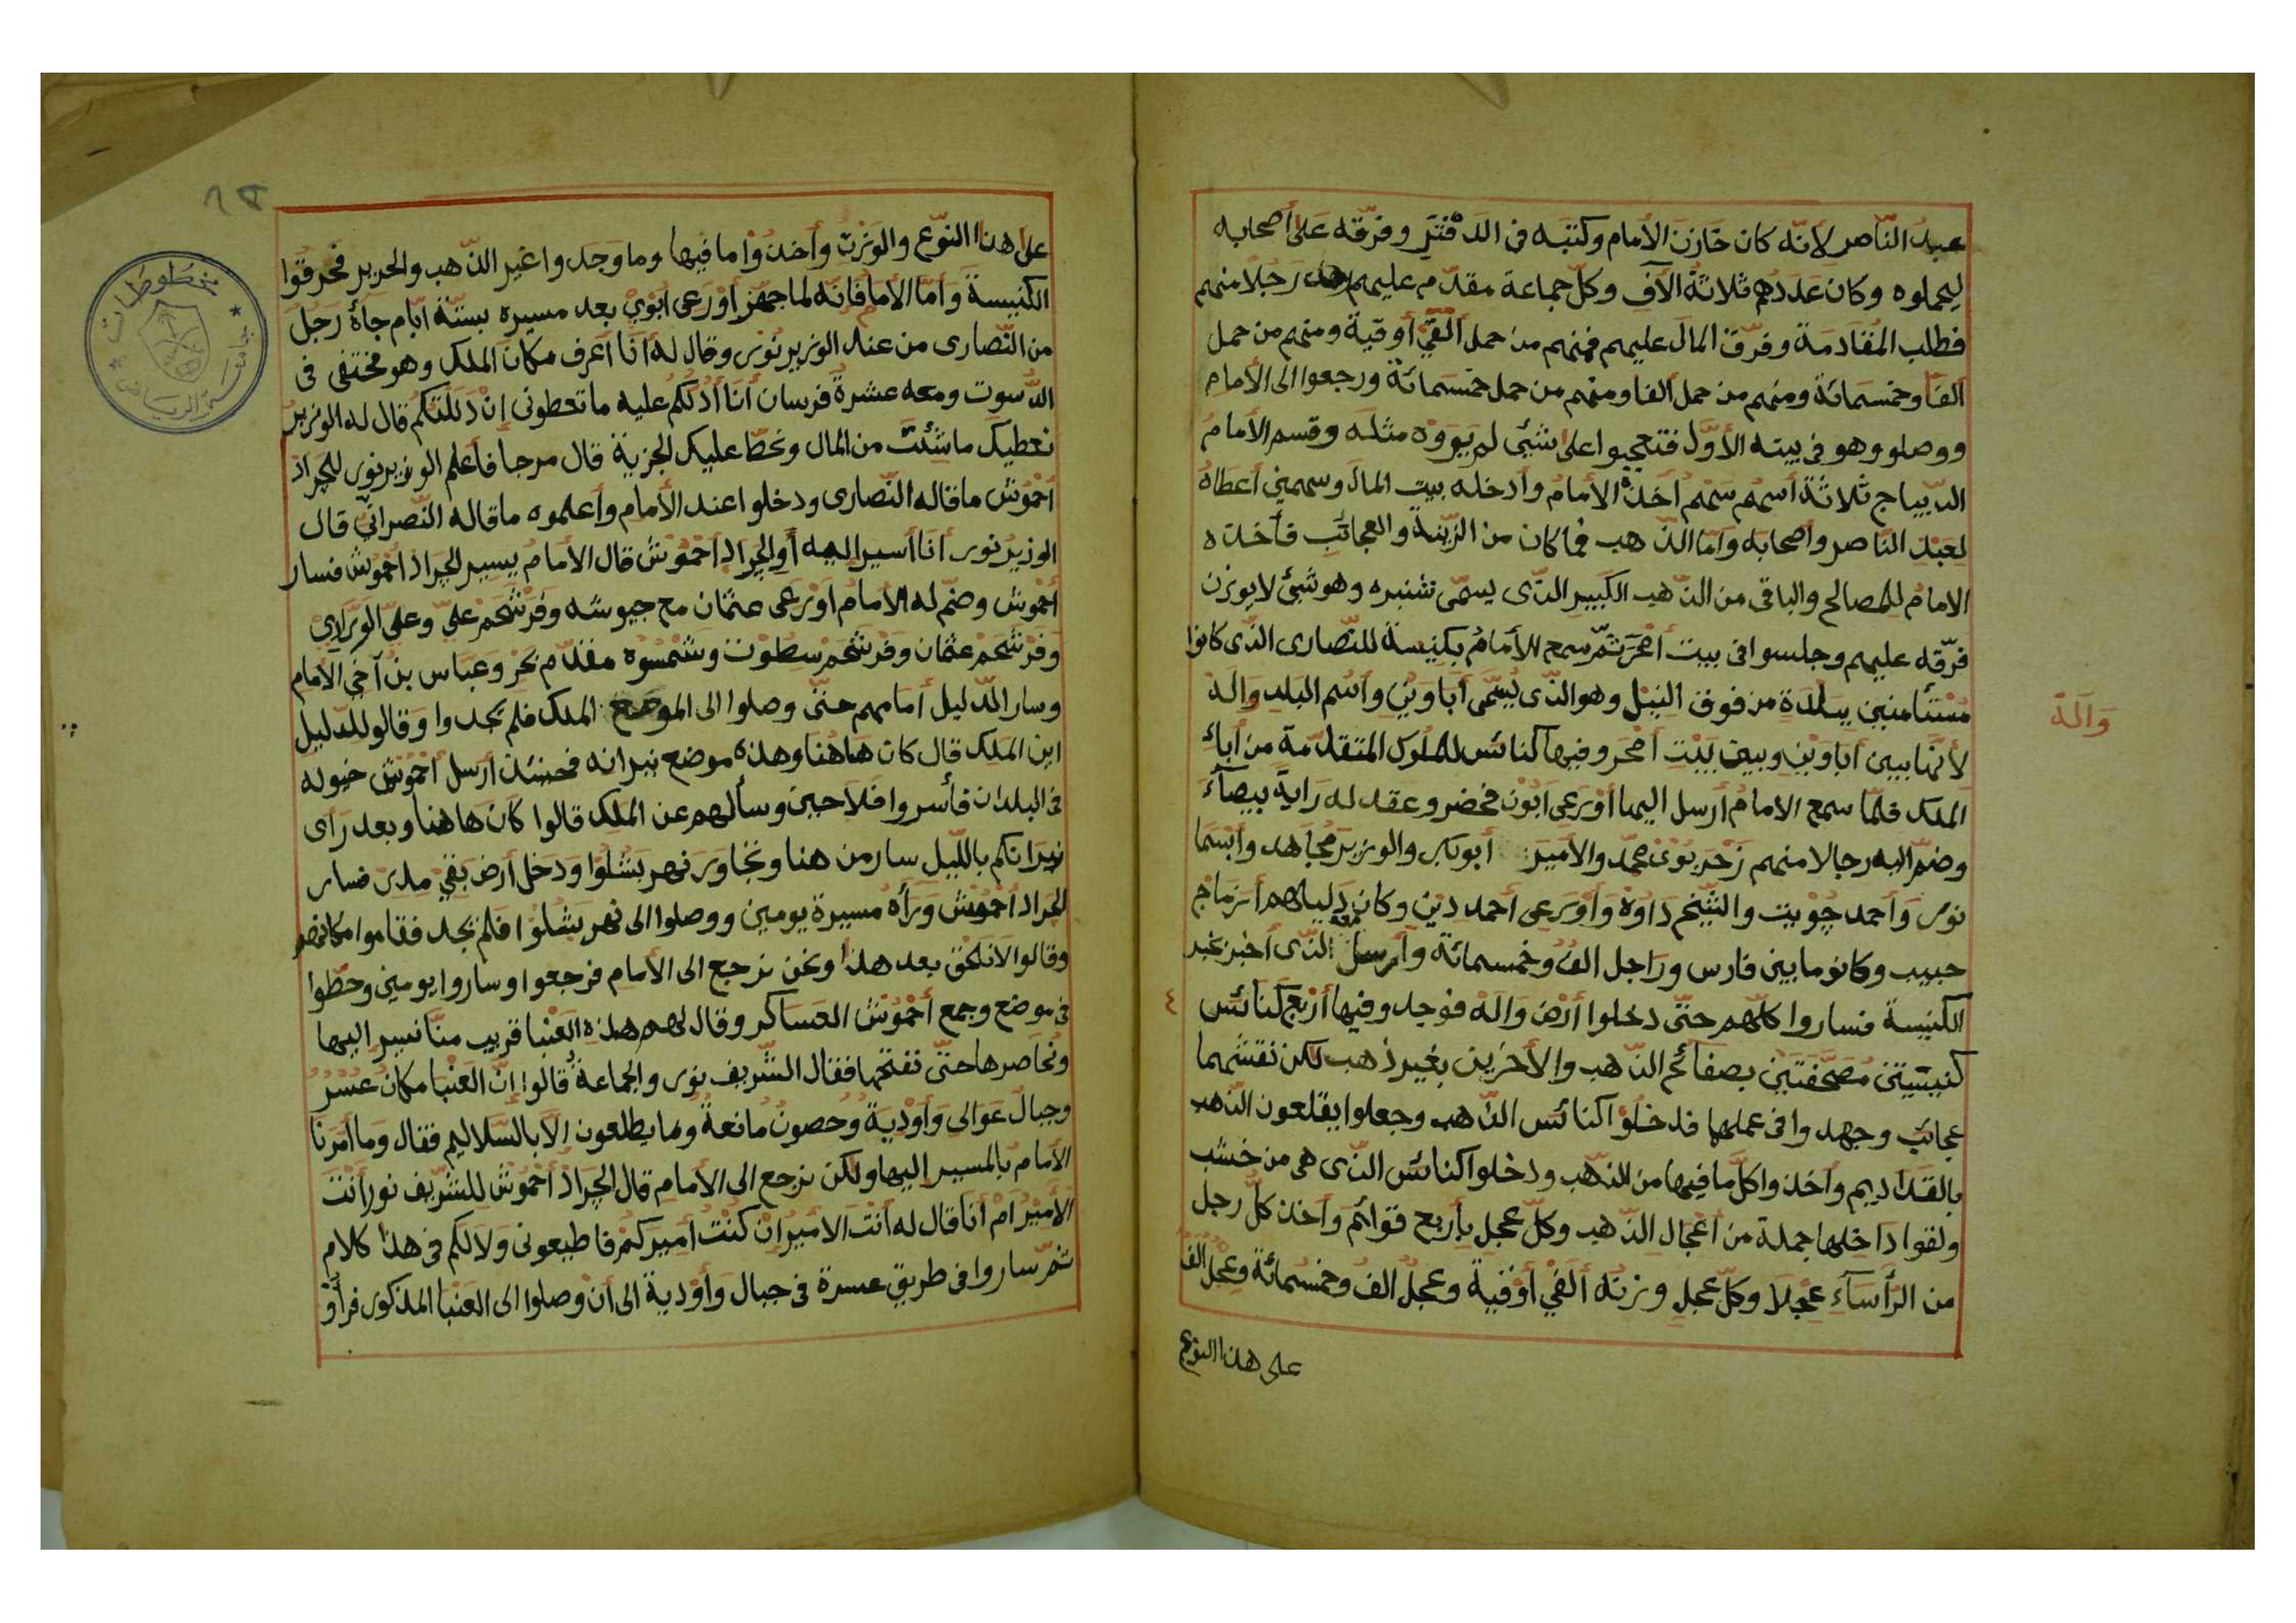 عبدُ النّاصر لانّه كان خازن الأمام وكتبَه فى الدفتَر وفرّقه عَلىٰ أصحابه
ليحملوه وكان عَدَدهم ثلاثةُ الآف وكلّ جماعة مقدّم عليهم رَجُلًا منهم
فطلب المُقادمة وفرّق المالَ عليهم فمنهم من حمل ألفَيْ أوقية ومنهم من حمل
الفًا وخمْسَمائة ومنهم من حمل الفا ومنهم من حمل خمْسَمائة ورجعوا الى الأمام
ووصلو وهو فى بيته الأوّل فتعجبوا على شئى لم يَرَوْه مثلَه وقسم الأمامُ
الدّيباج ثلاثَة أسهُم سَهْمُ أخَذَهُ الامامُ وأدخله بيت المالَ وسهمني أعطاهُ
لعَبْدِ النّاصر وأصحابه وأمّا الذّهب فما كان من الزّينة والعجائب فأخذه
الامامُ للمصالح والباقى من الذّهب الكَبير الذّى يسمّى تنبره وهو شئىٌ لا يوزن
فرّقه عليهم وجلسوا فى بيت أمْحَرَ ثمّ سمع الأمامُ بكنيسة للنّصارى الذّى كانوا
مُسْتَأمنين بِبَلْدَةٍ من فوق النيْل وهو الذّى يُسَمّى أبَاوِيْنِ واسُم البَلد وَالَه
لأنّها بين أبَاوَيْنِ وبين بَيْتِ أَمْحَر وفيها كنائسُ للمُلوك المتقدّمةِ من أباءِ
الملك فلمّا سمع الامامُ أرسل اليها أوْرَعى أبُوْن فحضر وعقد له رَايةً بيضآءَ
وضمّ اليه رجالا منهم زَحْرَبُوْىْ محمّد والأميْرَ أبوبكر والوزير مُجَاهد وابْسَمَا
نوْر وَأحمد جُوْيتَ والشّيْخَ دَاوُهْ وَأوْرَعى أحمد ديْن وكانَ دَليلهم أزمَاج
حبيب وكانو مابين فارس ورَاجل الفُ وخمسمائة وأرسل معَه الذّى أخبرَ بخبر
الكنيْسة فساروا كلّهم حتّى دخلوا أرْضَ وَالَهْ فوجدوفيها أرْبعُ كنائسَ ٤
كنيْسَتَيْن مُصَحّفتَيْن بصفائح الذّهب والأخرَين بغير ذهب لكن نقشهما
عجائب وجهدوا فى عملهما فدخَلُوْا كنائسَ الذّهب وجعلوا يقلعون الذّهب
بالقَدَاديم وأخذوا كلّ ما فيها من الذّهب ودخلوا كنائسَ الذّى هى من خَشب
ولقوا دَاخِلها جملة من أعْجَال الذّهب وكلّ عِجل بِأربع قوائم وأخذ كلّ رجل
من الرَّأسآءِ عِجْلًا وكلّ عِجل وزنُه ألفَيْ أوْقية وعجلُ الفُ وخمسُمائة وعِجلُ ألفُ
على هذا النوع
وَالَهْ
علىٰ هذا النّوع والوَزْنِ وأخذُوْا ما فيها وما وَجدوا غير الذّهب والحرير فحرقُوا
الكنيسةَ وَأمّا الأمام فانّه لما جهّز أوْرَعى أبُوْن بعد مسيره بستّة ايّام جآءَ رَجل
من النّصارى من عند الوزير نُوْر وقال له أنَا أعرف مكانَ الملك وهو مختفى فى
الدّسوت ومعه عشرةُ فرسان أنَا أدُلّكُمْ عليه ما تعطونى إنْ دَلَلْتُكُم قال له الوزيرُ
نعطيك ماشئتَ من المال ونحطّ عليك الجزيةَ قال مرحبا فأعلم الوزير نوْر للجرَادْ
أحْمُوْش ما قاله النّصارى ودخلوا عند الأمام وأعلموه ماقاله النّصرانىّ قال
الوزيرُ نور أنَا أسير اليه أوِ الجرَاد أحْمُوْش قال الأمامُ يسير الجرَادْ أحْمُوش فسار
أحمُوش وضمّ له الأمام أوْرَعى عثمان مع جيوشه وفَرْشَحَمْ عليّ وعليّ الوَرَّادِىْ
وَفَرْشَحَمْ عثمان وفَرْشَحَمْ سطوْت وشَمْسُوهْ مقدّم بحَرْ وعَبَاس بنُ أخى الامام
وسار الدّليل أمَامهم حتّى وصلوا الى الموضع الملك فلم يجدوا وقالو للدّليل
اين الملك قال كانَ هاهُنا وهذه موضع نيرانه فحينئذ أرسل أحْمُوْش خيوله
فى البلدان فأسروا فلاحين وسألهم عن الملك قالوا كانَ هاهنا وبعد رأى
نيرانكم باللّيل سار من هنا وتجاوَزَ نهر بَشلُوْا وَدَخل أرضَ بَقىْ مدرْ فسار
الجرادْ أحْمُوْش وَرَأه مسيرة يومين ووصلوا الى نهر بَشلُوْا فلم يجد فقاموا مكانهم
وقالوا لا نلحق بعد هذا ونحن نرجع الى الأمام فرجعوا وساروا يومين وحطّوا
فى موضع وجمع أحْمُوْش العَسَاكر وقال لهم هذه العَنْبا قريب منّا نسير اليها
ونُحاصرها حتّى نفتحها فقال الشّريف نور والجماعةُ قالوا إنّ العَنْبَا مكانُ عسْرُ
وجبالُ عَوَالى وَأوْديةُ وحصونُ مانعةُ وما يطلعون الّا بالسّلاليم فقال وَما أمَرَنَا
الأمامُ بالمسير اليها ولكن نرجع الى الأمام قال الجرَادْ أحْمُوْش للشّريف نورأنْتَ
الأميْرُ امْ أنا قال له أنتَ الأميْرُ انْ كنْتُ أميْرَكمْ فا طيعونى وَلا لكُم فى هذا كلام
ثمّ ساروا فى طريق عسرة فى جبال وَأوْدية الى أنْ وصلوا الى العَنْبا المذكور فرأوْ
مخطوطات